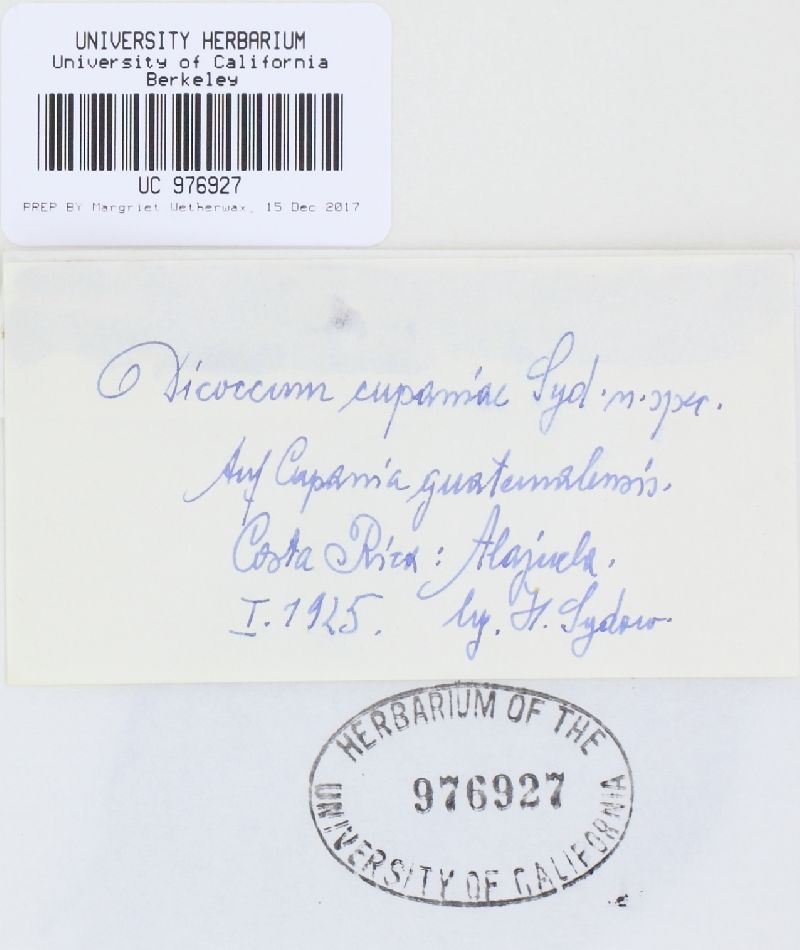 UNIVERSITY HERBARIUM
University of California
Berkeley
UC 976927
PREP BY Margriet Wetherwax, 15 Dec 2017
Dicoccum cupaniae Syd. n. spec.
Auf Cupania guatemalensis.
Costa Rica: Alajuela.
I. 1925. lg. H. Sydow.
HERBARIUM OF THE
976927
UNIVERSITY OF CALIFORNIA